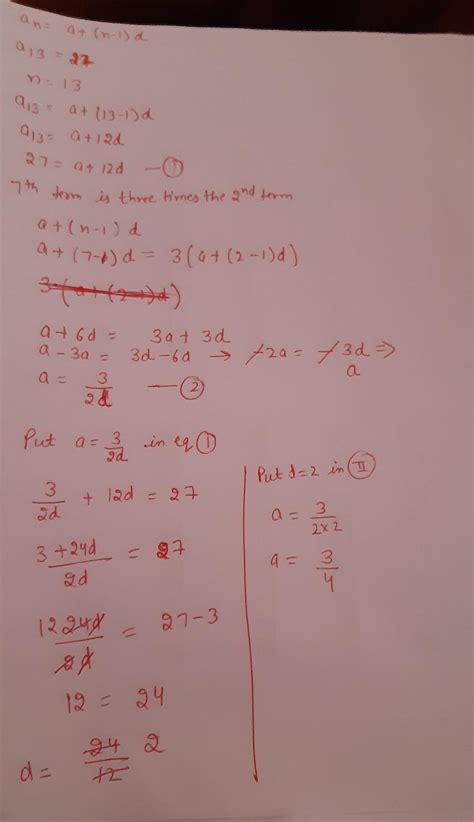 an = a + (n-1) d
a13 = 27
n = 13
a13 = a + (13-1)d
a13 = a + 12d
27 = a + 12d — ①
7th term is three times the 2nd term
a + (n-1) d
a + (7-1) d = 3(a + (2-1)d)
3 (a + (2-1)d)
a + 6d = 3a + 3d
a - 3a = 3d - 6d → -2a = -3d ⇒
a
a = 3/2d — ②
Put a = 3/2d in eq ①
3/2d + 12d = 27
3 + 24d / 2d = 27
12 24d / 2d = 27 - 3
12 = 24
d = 24/12 2
Put d = 2 in Ⅱ
a = 3/2×2
a = 3/4